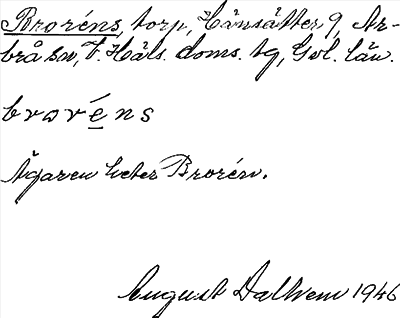 Broréns, torp, Hänsätter 9, Ar-
brå sn, V. Häls. doms. tg, Gvl. län.
brωréns
Ägaren heter Brorén.
August Dalhem 1946